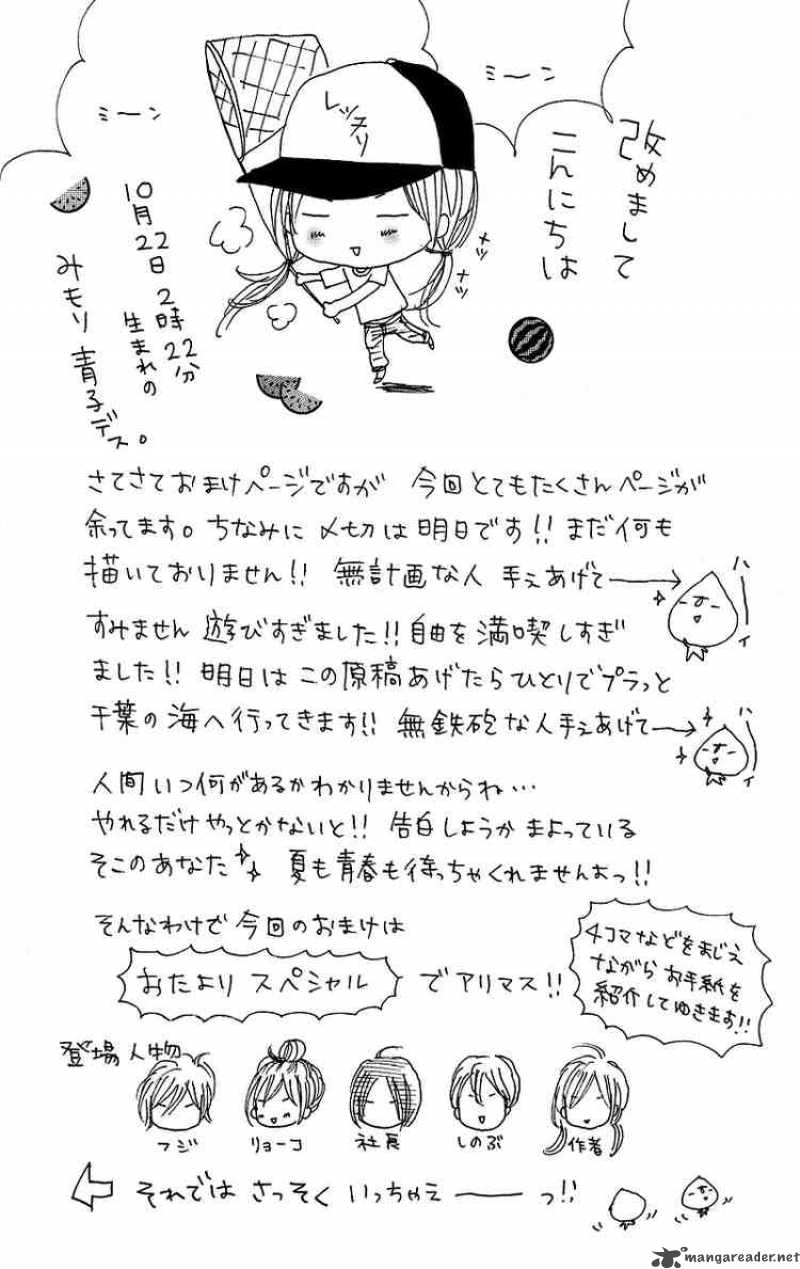 改めまして
こんにちは
ミーン
ミーン
レッスリ
メッ
メッ
10月22日 2時22分
生まれの
みもり青子デス。
さてさておまけページですが 今回とてもたくさんページが
余ってます。ちなみに〆切は明日です!! まだ何も
描いておりません!! 無計画な人 手ぇあげて→
ハーイ
すみません 遊びすぎました!! 自由を満喫しすぎ
ました!! 明日はこの原稿あげたらひとりでプラっと
千葉の海へ行ってきます!! 無鉄砲な人手ぇあげて→
ハーイ
人間いつ何があるかわかりませんからね…
やれるだけやっとかないと!! 告白しようかまよっている
そこのあなた 夏も青春も待っちゃくれませんよっ!!
そんなわけで今回のおまけは
おたより スペシャル でアリマス!!
4コマなどをまじえ
ながら お手紙を
紹介してゆきます!!
登場人物
フジ リョーコ 社長 しのぶ 作者
それでは さっそく いっちゃえ――っ!!
mangareader.net